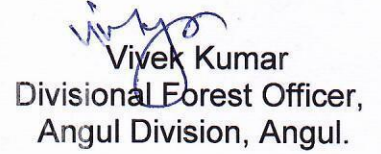 Vivek Kumar
Divisional Forest Officer,
Angul Division, Angul.